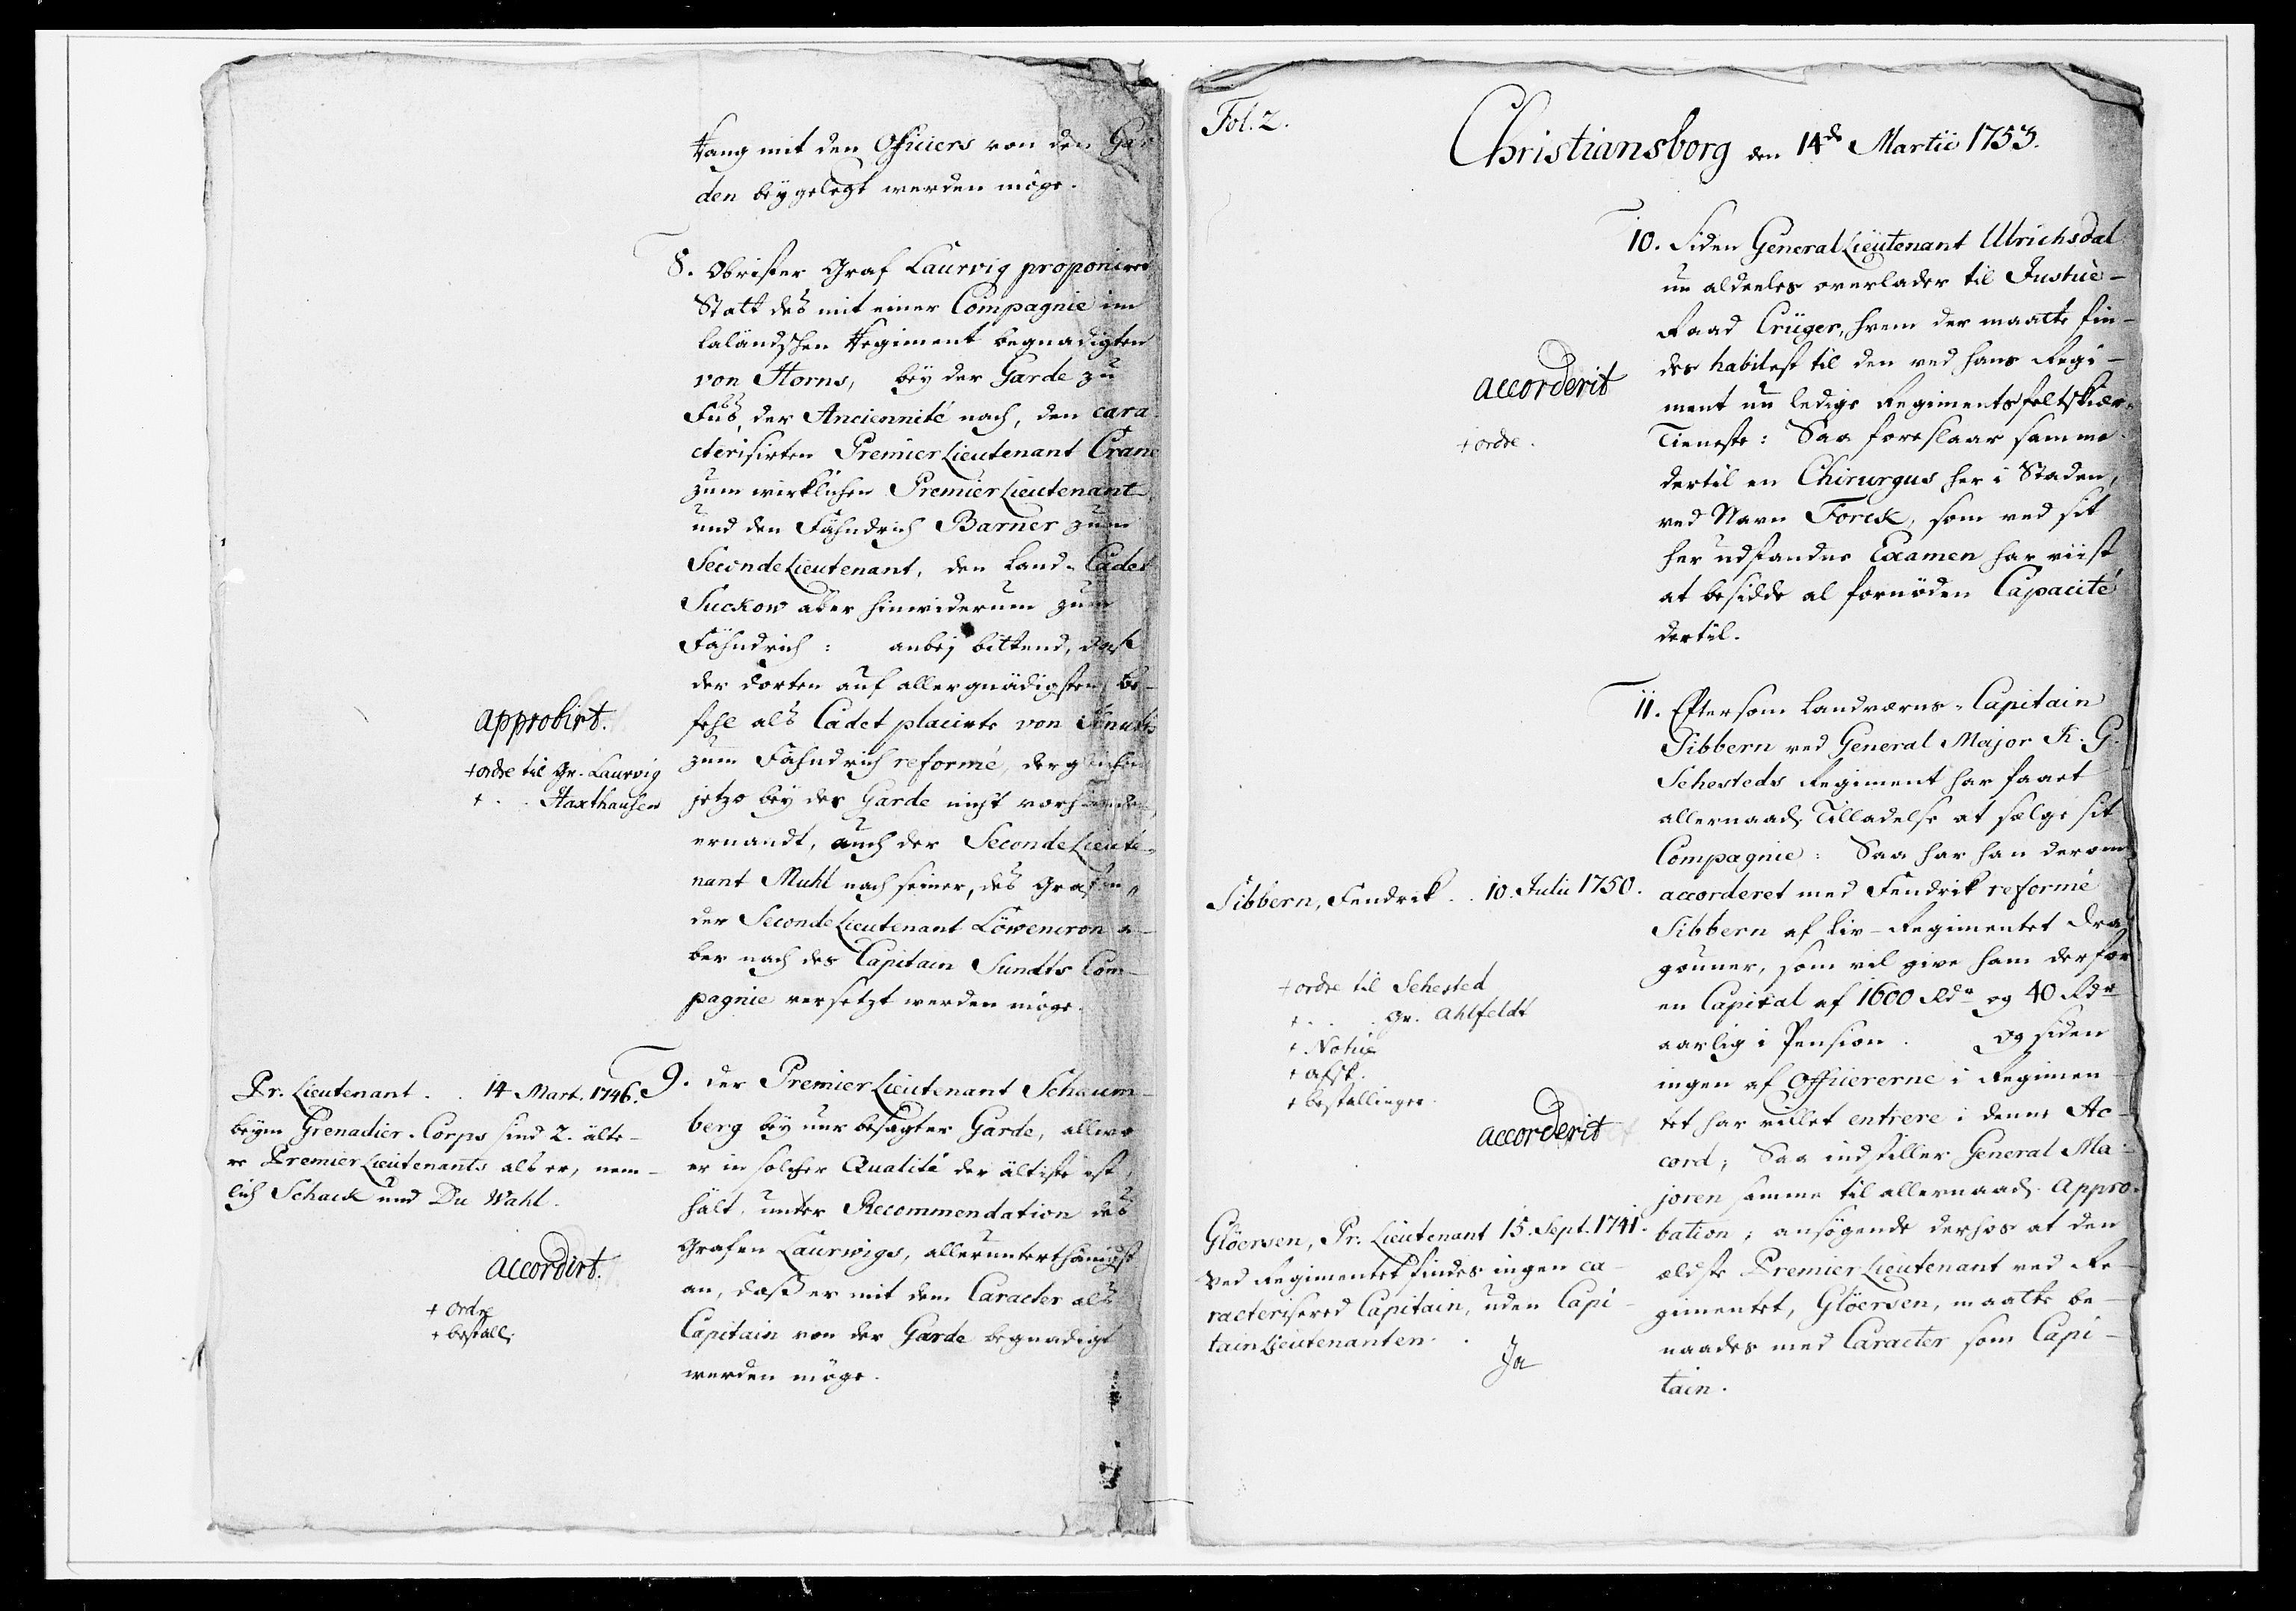 Rang mit den Officiers von den Gar
den beygelegt werden möge.
8. Obrister Graf Laurvig proponiret
Statt des mit einer Compagnie im
laländschen Regiment begnadigten
von Horns, bey der Garde zu
Fuß, der Anciennité nach, den cara
cterisirten PremierLieutenant Crane
zum wirklichen PremierLieutenant
und den Fähndrich Barner zum
SecondeLieutenant, den Land-Cadet
Suckow aber hinwiderum zum
Fähndrich: anbey bittend, daß
der dorten auf allergnädigsten be-
fehl als Cadet placirte von
zum Fähndrich reformé, dergleichen
jetzo bey der Garde nicht vorhanden,
ernandt, auch der SecondeLieute-
nant Muhl nach seiner, des Grafen,
der SecondeLieutenant Löwencron a-
ber nach des Capitain Sundts Com-
pagnie versetzt werden möge.
approbirt.
+ ordre til Gr. Laurvig
+ . . Haxthausen
9. der PremierLieutenant Schaum-
berg bey nur besagter Garde, allwo
er in solcher Qualité der älteste ist,
hält, unter Recommendation des
Grafen Laurwigs, allerunterthänigst
an, daß er mit dem Caracter als
Capitain von der Garde begnadigt
werden möge.
Pr. Lieutenant . . 14 Mart. 1746.
beym Grenadier-Corps sind 2. älte-
re PremierLieutenants als er, nem-
lich Schack und Du Wahl.
accordirt.
+ ordre
+ bestall:
Fol. 2.
Christiansborg den 14de Martii 1753.
10. Siden GeneralLieutenant Ulrichsdal
nu aldeeles overlader til Justice-
Raad Crüger, hvem der maatte fin-
des habilest til den ved hans Regi-
ment nu ledige Regimentsfeltskiær-
Tieneste: Saa foreslaar samme
dertil en Chirurgus her i Staden,
ved Navn Forck, som ved sit
her udstandne Examen har viist
at besidde al fornøden Capacité
dertil.
accorderit
+ ordre.
11. Eftersom Landværns-Capitain
Sibbern ved General Major K. G.
Sehesteds Regiment har faaet
allernaad: Tilladelse at sælge sit
Compagnie: Saa har han derom
accorderet med Fendrik reformé
Sibbern af Liv-Regimentet Dra-
gouner, som vil give ham derfor
en Capital af 1600 Rdr og 40 Rdr
aarlig i Pension. Og siden
ingen af Officererne i Regimen-
tet har villet entrere i denne Ac-
cord; Saa indstiller General Ma-
joren samme til allernaad: Appro-
bation; ansøgende derhos at den
ældste PremierLieutenant ved Re-
gimentet, Glöersen, maatte be-
naades med Caracter som Capi-
tain.
Sibbern, Fendrik . . 10. Julii 1750.
+ ordre til Sehested
+ . . . Gr. Ahlfeldt
+ Notice
+ afsk.
+ bestallinger.
accorderit
Glöersen, Pr. Lieutenant 15. Sept. 1741.
Ved Regimentet findes ingen ca-
racterisered Capitain, uden Capi-
tainLieutenanten.
Ja